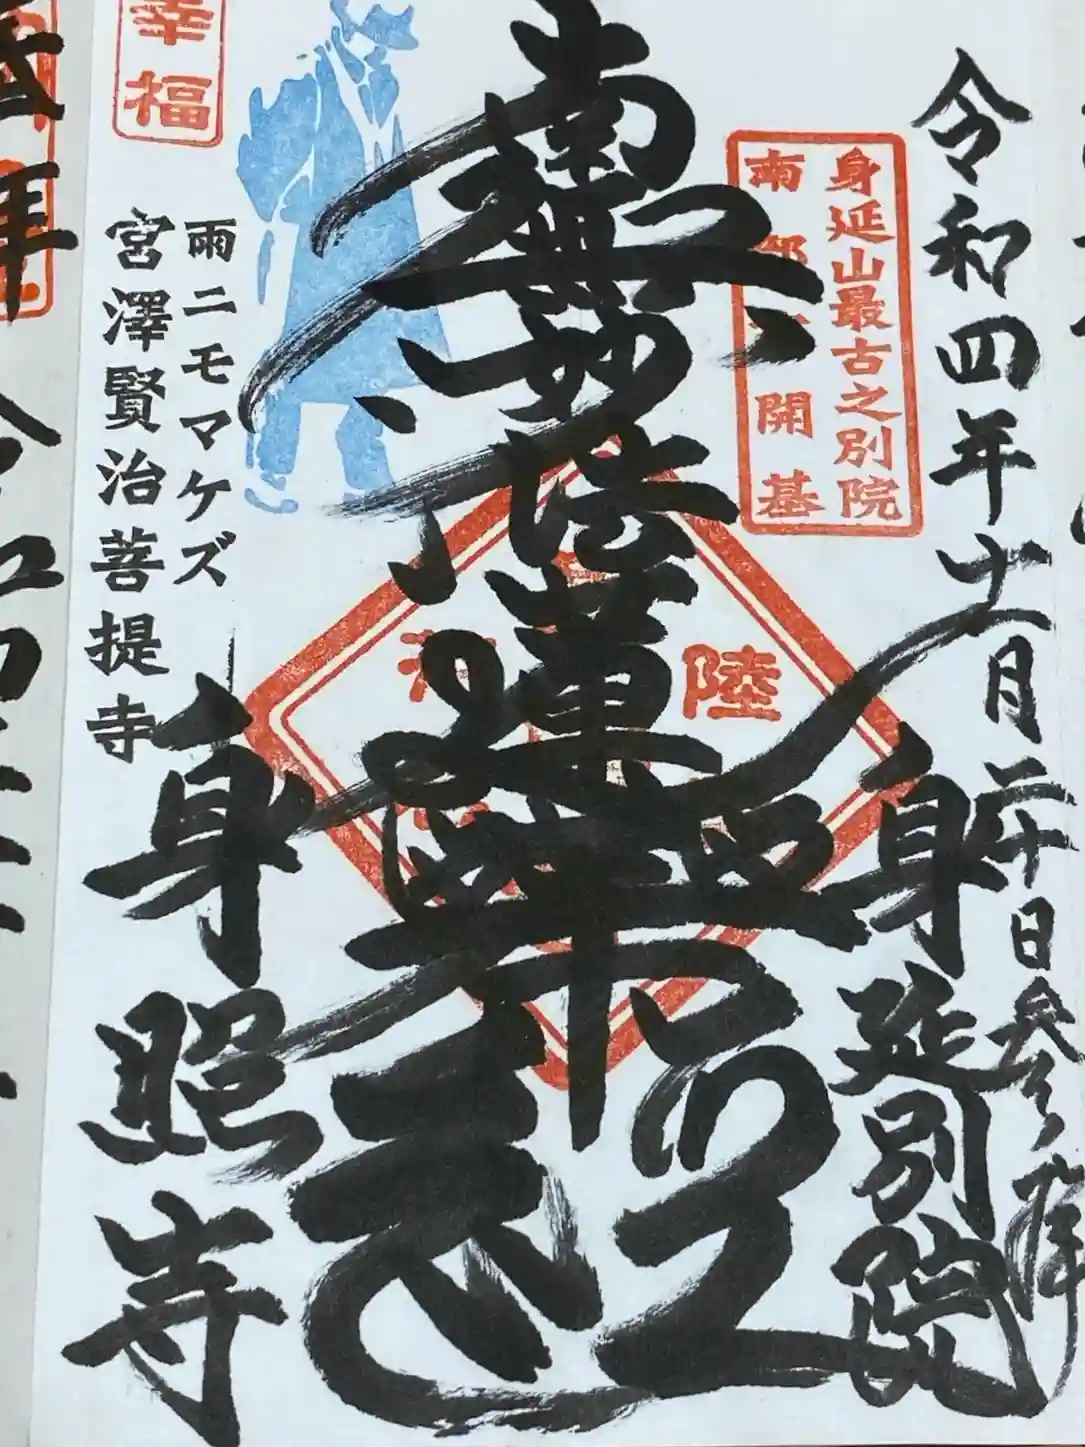 令和四年十一月二十日参拝
身延別院
身延山最古之別院
南部 開基
陸
南無妙法蓮華経
幸福
雨ニモマケズ
宮澤賢治菩提寺
身照寺